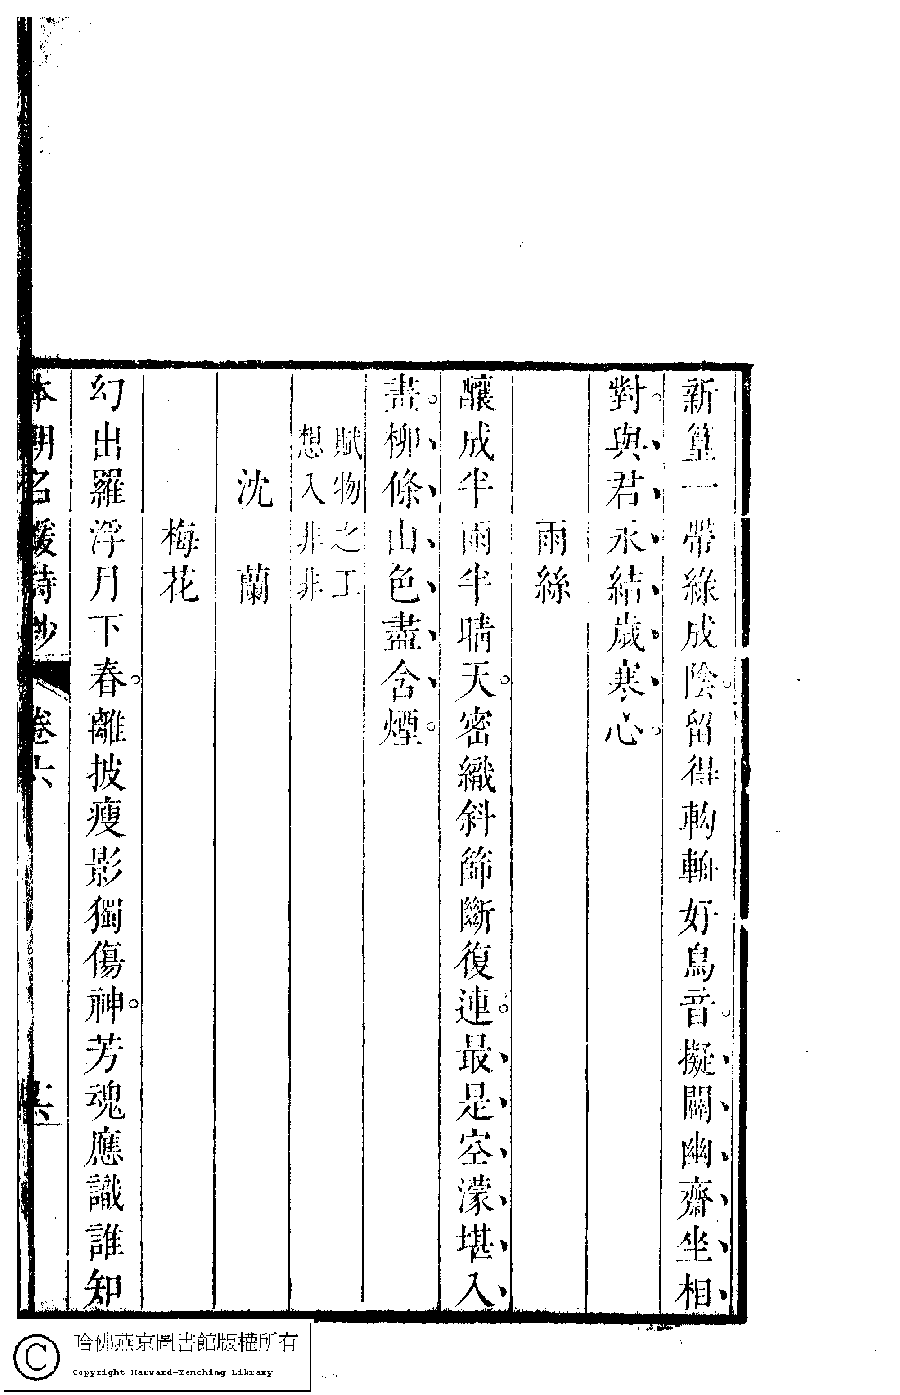 新篁一帶綠成陰留得輈好鳥音擬闢幽齋坐相
對與君永結歲寒心
雨絲
釀成半雨半晴天密織斜篩斷復連最是空濛堪入
畫柳條山色盡含煙
賦物之工
想入非非
沈蘭
梅花
幻出羅浮月下春離披瘦影獨傷神芳魂應識誰知
本朝名媛詩鈔 卷六
哈佛燕京圖書館版權所有
Copyright Harvard-Yenching Library